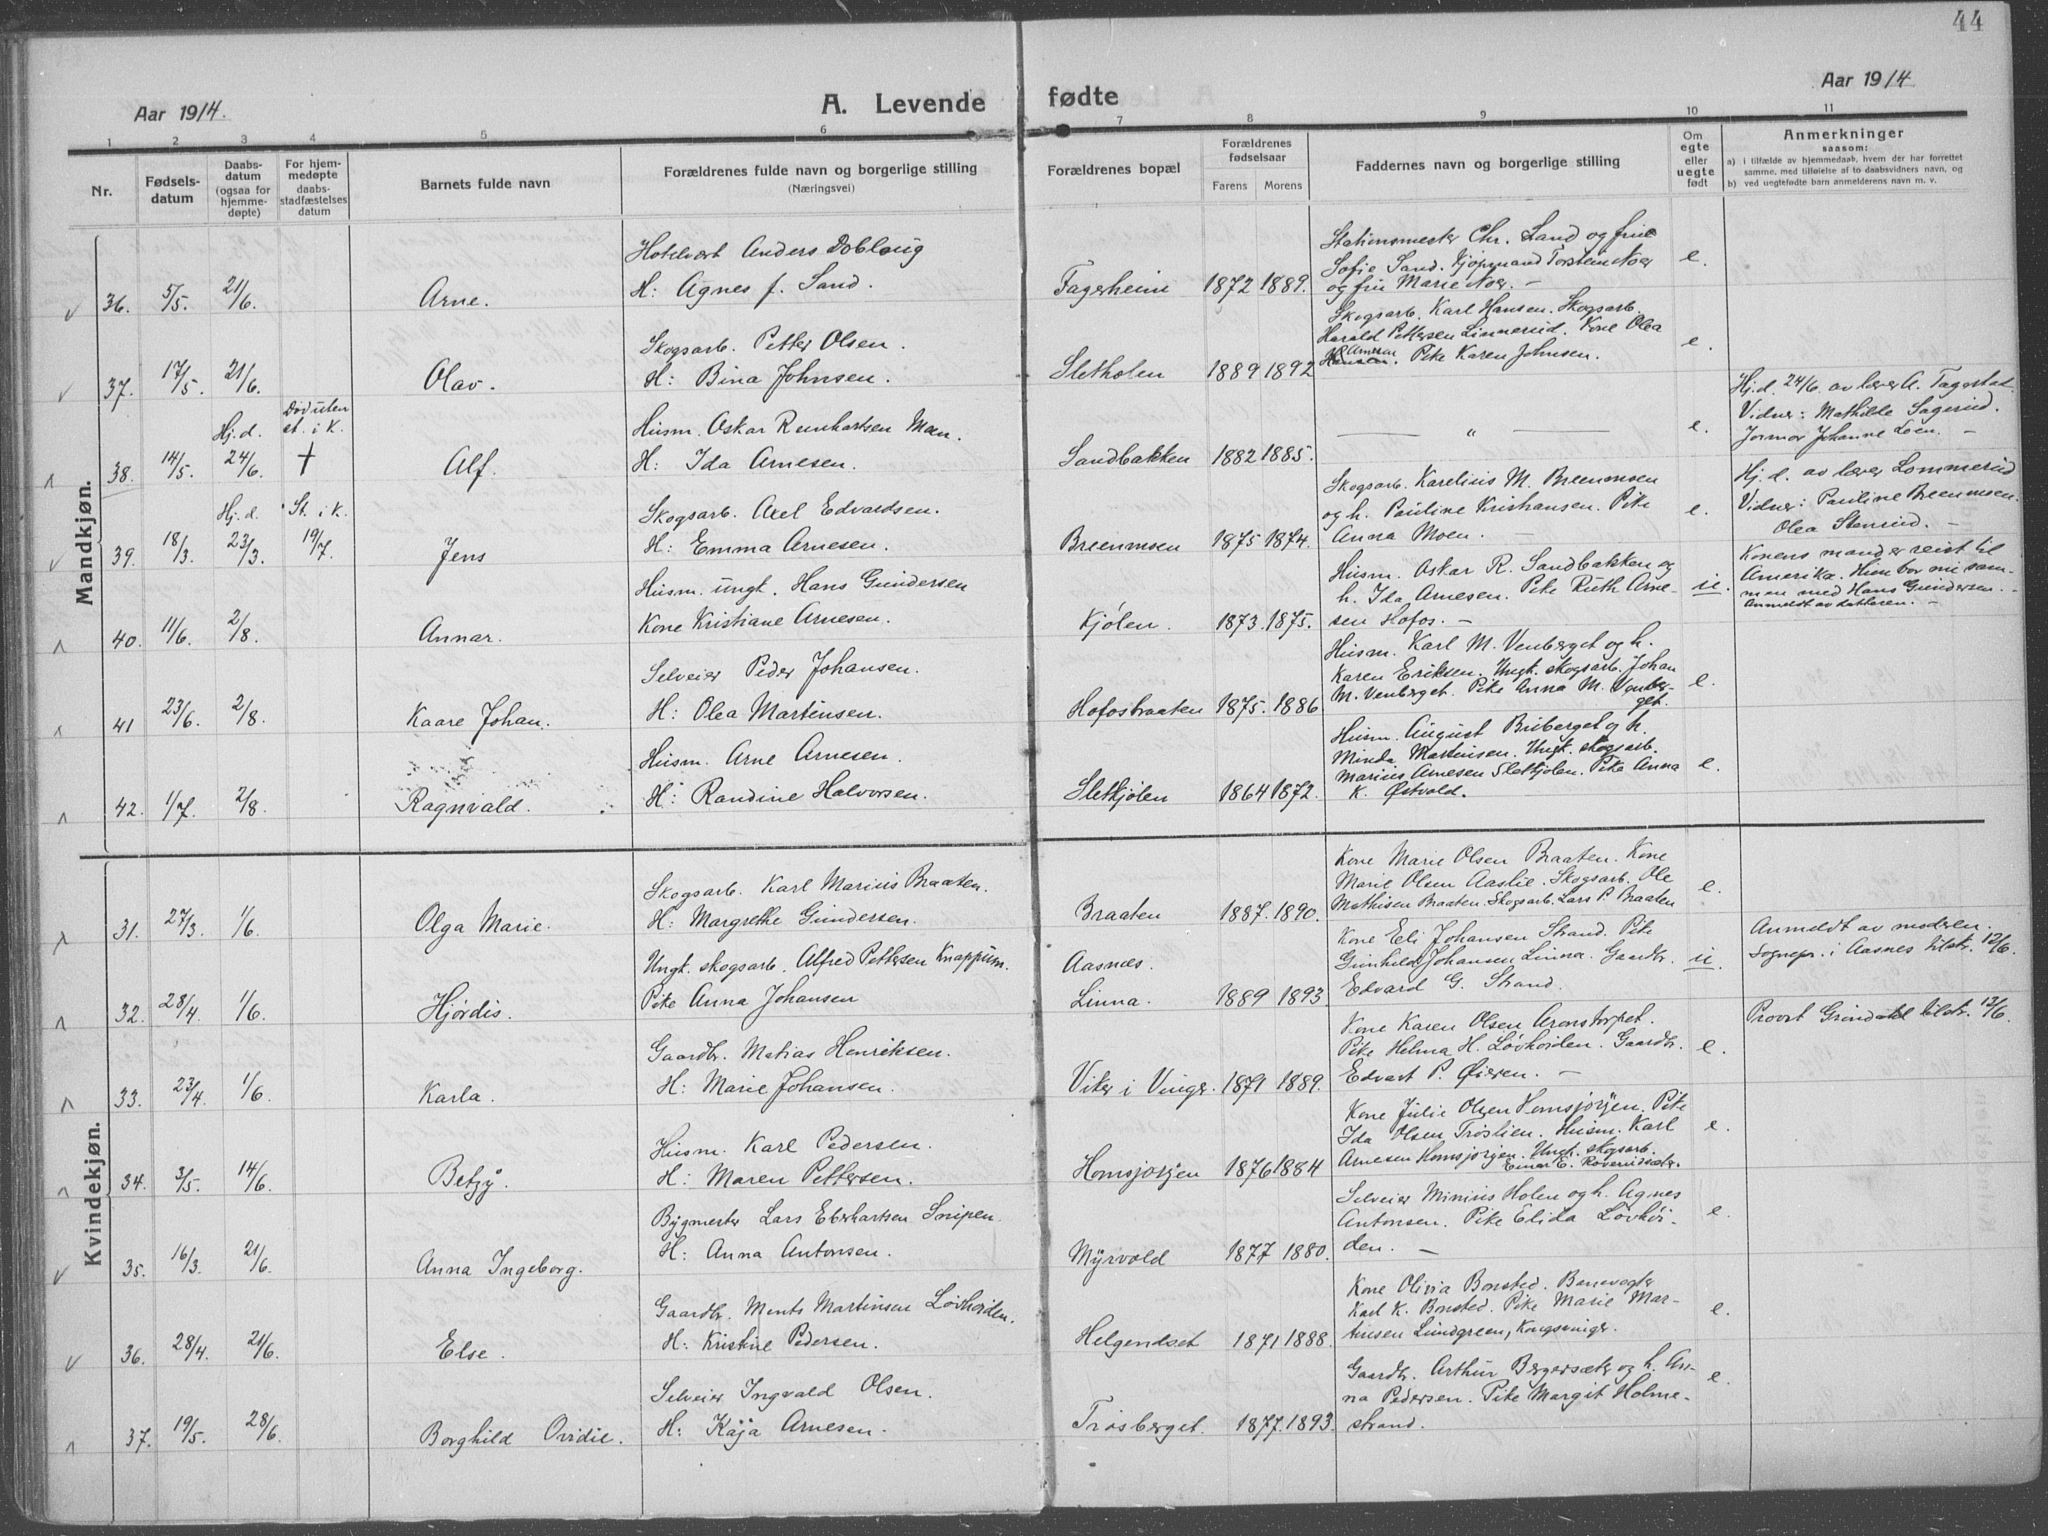 44
Aar 1914.
A. Levende fødte
Aar 1914
1 2 3 4 5 6 7 8 9 10 11
Nr.
Fødsels-
datum
Daabs-
datum
(ogsaa for
hjemme-
døpte)
For hjem-
medøpte
daabs-
stadfæstelses
datum
Barnets fulde navn
Forældrenes fulde navn og borgerlige stilling
(Næringsvei)
Forældrenes bopæl
Forældrenes
fødselsaar
Farens Morens
Faddernes navn og borgerlige stilling
Om
egte
eller
uegte
født
Anmerkninger
saasom:
a) i tilfælde av hjemmedaab, hvem der har forrettet
samme, med tilføielse af to daabsvidners navn, og
b) ved uegtefødte barn anmelderens navn m. v.
Mandkjøn.
36. 5/5. 21/6. Arne.
Hotelvært Anders Dobloug
H: Agnes f. Sand.
Fagerheim 1872 1889.
Stationsmester Chr. Sand og frue
Sofie Sand. Kjøpmand Torstein Noer
og fru Marie Noer. —
e.
37. 17/5. 21/6. Olav.
Skogsarb. Petter Olsen.
H: Bina Johnsen.
Sletholen 1889 1892
Skogsarb. Karl Hansen. Skogsarb.
Harald Pettersen Linnerud. Kone Olea
Hansen. Arnesen Pike Karen Johnsen.
e.
38. 14/5. Hj.d. 24/6. Død uten
st. i K. + Alf.
Husm. Oskar Reinhartsen Moen.
H: Ida Arnesen.
Sandbakken 1882 1885.
— " —
e.
Hj.d. 24/6. av lærer A. Tagestad.
Vidner: Mathilde Sagerud.
Jormor Johanne Loen. —
39. 18/3. Hj.d. 23/3. St. i K. 19/7. Jens
Skogsarb. Axel Edvardsen.
H: Emma Arnesen.
Breenmoen 1875 1874.
Skogsarb. Karelius M. Breenmoen
og h. Pauline Kristiansen. Pike
Anna Moen. —
e.
Hj.d. av lærer Lommerud
Vidner: Pauline Breenmoen.
Olea Stenrud. —
40. 11/6. 2/8. Annar.
Husm. ungt. Hans Gundersen
Kone Kristiane Arnesen.
Kjølen. 1873. 1875.
Husm. Oskar R. Sandbakken og
h. Ida Arnesen. Pike Ruth Arne-
sen Hofos. —
u.
Konens mand er reist til
Amerika. Hun bor nu sam-
men med Hans Gundersen.
Anmeldt av datteren. —
41 23/6. 2/8. Kaare Johan.
Selveier Peder Johansen.
H: Olea Martinsen.
Hofosbraaten 1875. 1886
Husm. Karl M. Venberget og h.
Karen Eriksen. Ungk. skogsarb. Johan
M. Venberget. Pike Anna M. Venber-
get.
e.
42. 1/7. 2/8. Ragnvald.
Husm. Arne Arnesen.
H: Randine Halvorsen.
Sletkjølen 1864 1872.
Husm. August Buberget og h.
Minda Martinsen. Ungk. skogsarb.
Marius Arnesen Sletkjølen. Pike Anna
K. Østvold.
e.
Kvindekjøn.
31. 27/3. 1/6. Olga Marie.
Skogsarb. Karl Marius Braaten.
H: Margrethe Gundersen.
Braaten 1887. 1890.
Kone Marie Olsen Braaten. Kone
Marie Olsen Aaslie. Skogsarb. Ole
Mathisen Braaten. Skogsarb. Lars P. Braaten
e.
32. 28/4. 1/6. Hjørdis.
Ungk. skogsarb. Alfred Pettersen Knappum.
Pike Anna Johansen
Aasnes.
Linna. 1889 1893.
Kone Eli Johansen Strand. Pike
Gunhild Johansen Linna. Gaardbr.
Edvard G. Strand.
u.
Anmeldt av moderen.
Sognepr. i Aasnes tilstr. 12/6.
33. 23/4. 1/6. Karla.
Gaardbr. Matias Henriksen.
H: Marie Johansen.
Viker i Vinger. 1871 1889.
Kone Karen Olsen Aronstorpet.
Pike Helma H. Løvhoiden. Gaardbr.
Edvart P. Øieren. —
e.
Provst Grøndahl tilstr. 12/6
34. 3/5. 14/6. Betzy.
Husm. Karl Pedersen.
H: Maren Pettersen.
Homsjorjen 1876 1884
Kone Julie Olsen Homsjorjen. Pike
Ida Olsen Trøslien. Husm. Karl
Arnesen Homsjorjen. Ungk. skogsarb.
Einar E. Roverudsæter.
e.
35. 16/3. 21/6. Anna Ingeborg.
Bygmester Lars Eberhartsen Snipen.
H: Anna Antonsen.
Myrvold 1877 1880.
Selveier Minius Holen og h. Agnes
Antonsen. Pike Elida Løvhoi-
den. —
e.
36. 28/4. 21/6. Else.
Gaardbr. Ments Martinsen Løvhoiden.
H: Kristine Pedersen.
Helgendset 1871 1888.
Kone Olivia Bonsted. Banevogter
Karl K. Bonsted. Pike Marie Mar-
tinsen Lundgreen, Kongsvinger.
e.
37. 19/5. 28/6. Borghild Ovidie.
Selveier Ingvald Olsen.
H: Kaja Arnesen.
Trøsberget. 1877. 1893.
Gaardbr. Arthur Bergersæter og h. An-
na Pedersen. Pike Margit Holme-
strand.
e.